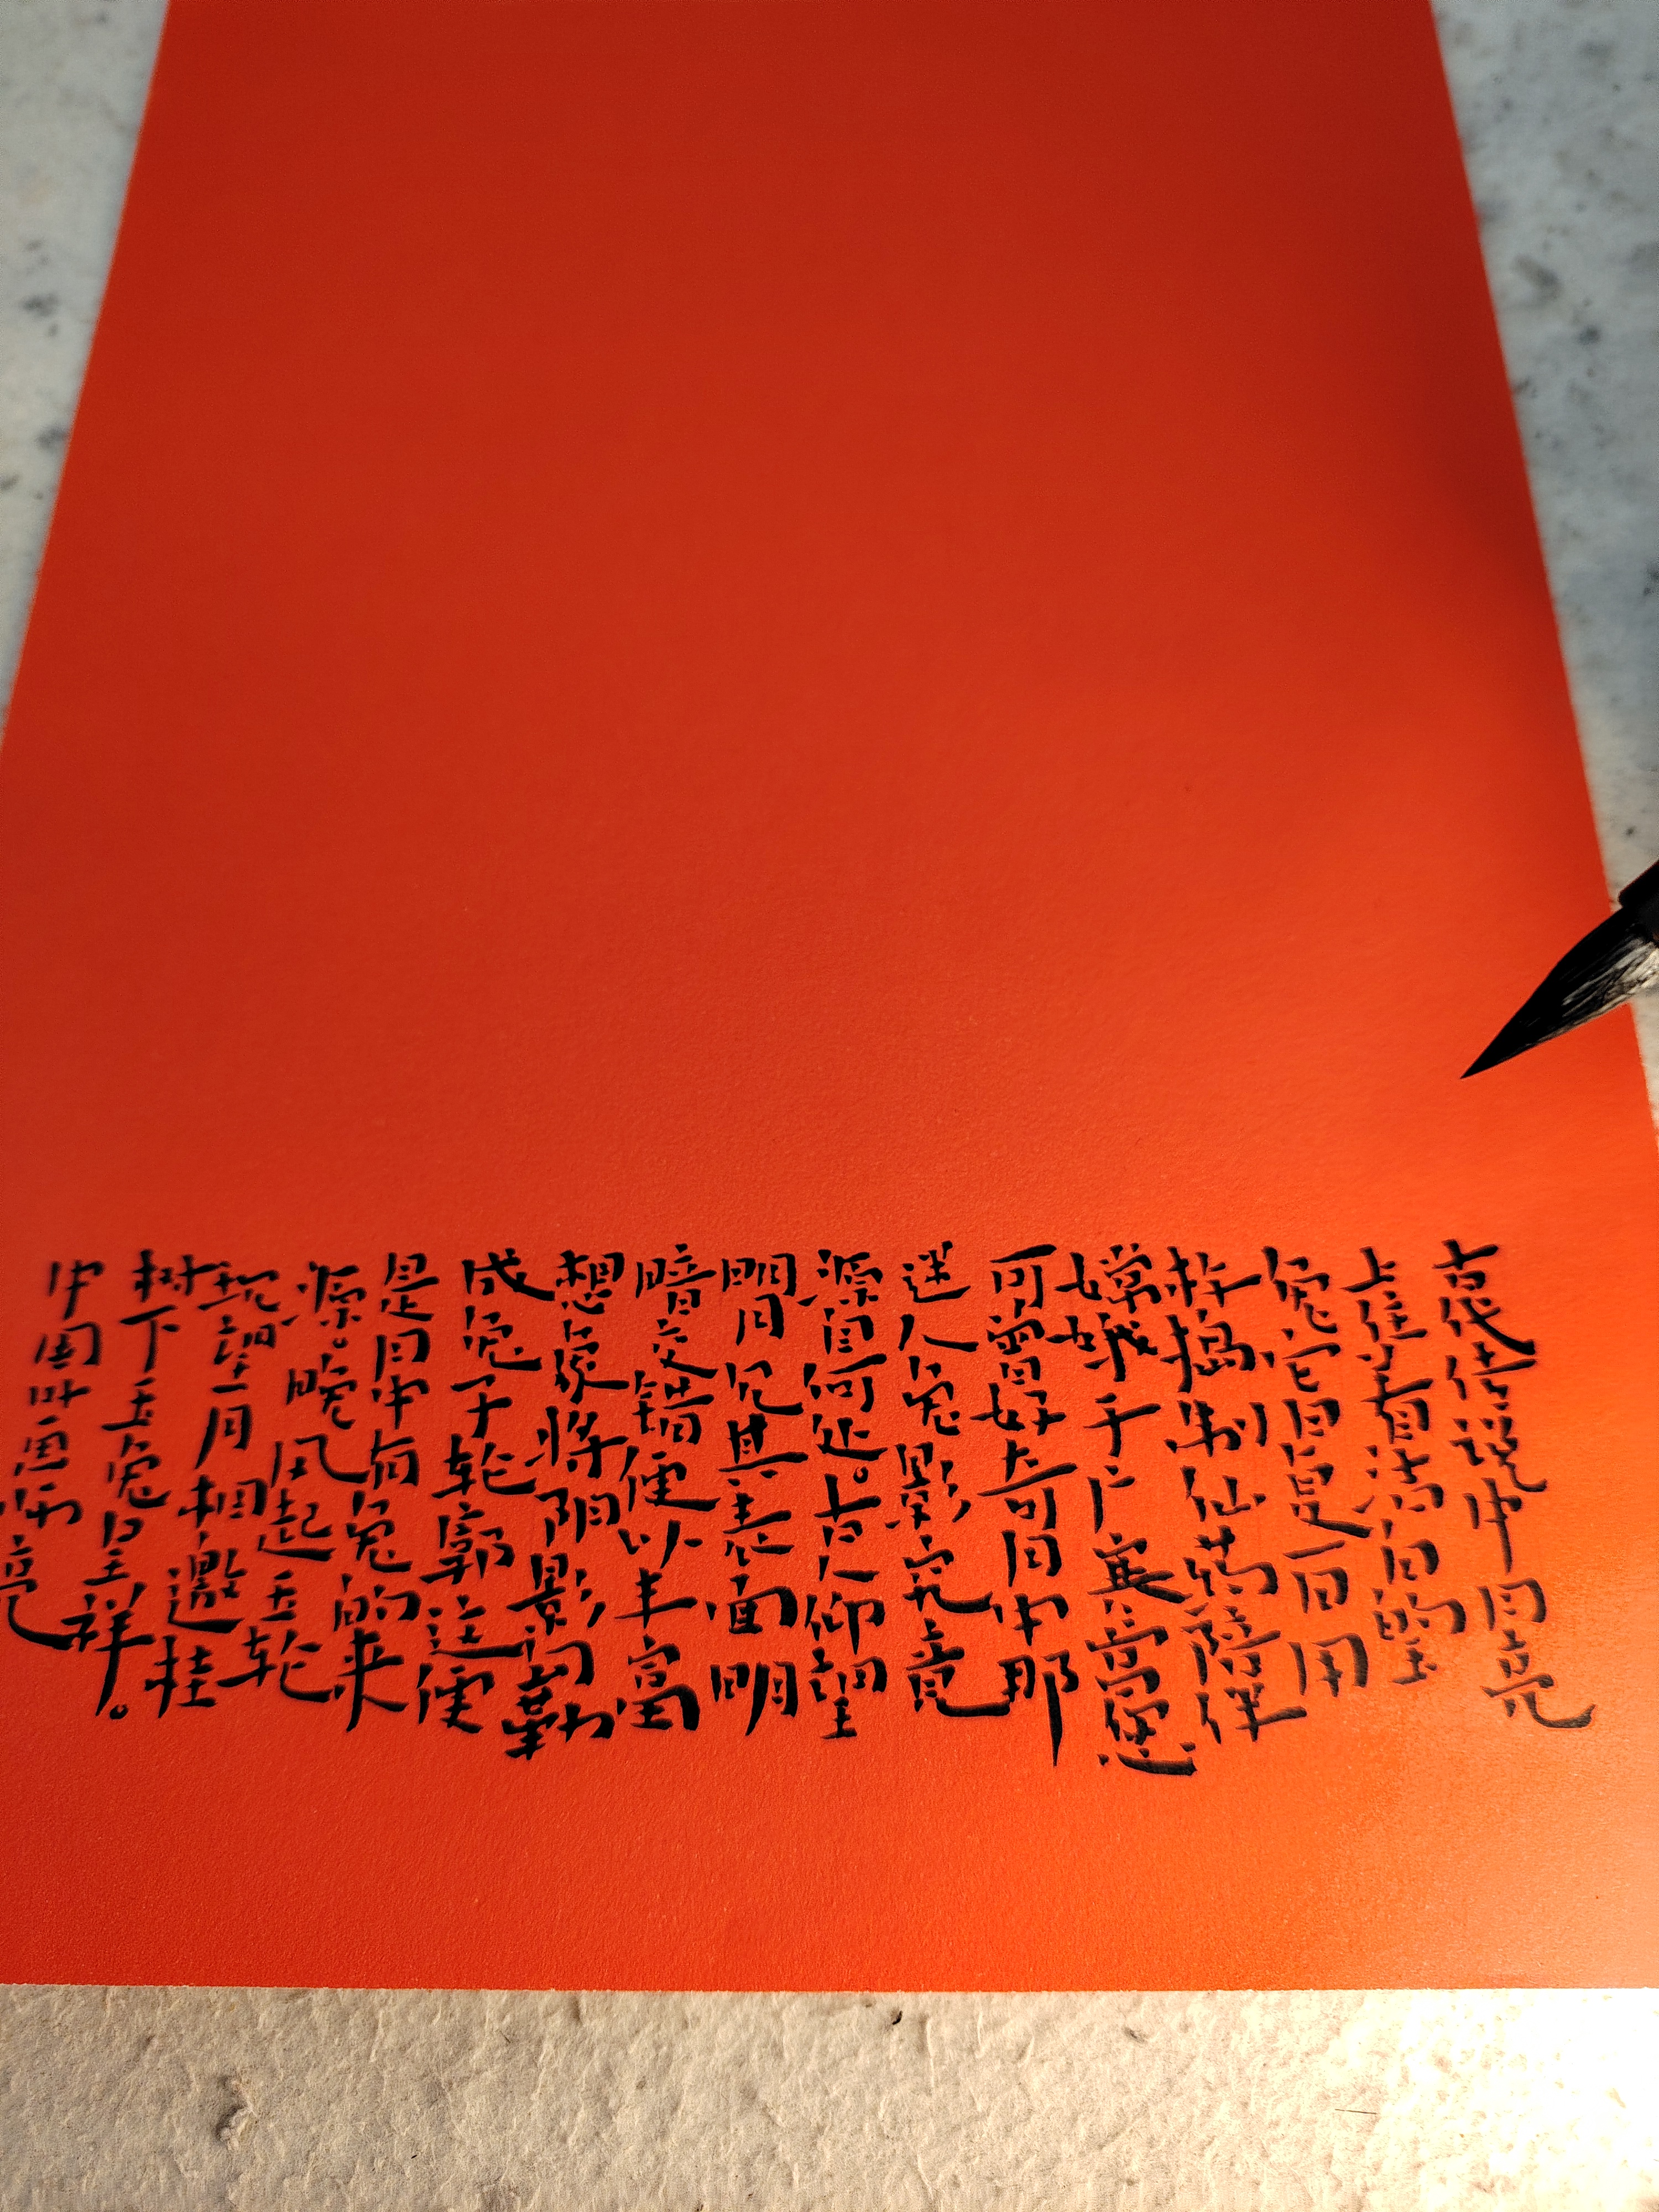 古代传说中月亮
上住着洁白的玉
兔它日复一日用
杵捣制仙药陪伴
嫦娥于广寒宫您
可曾好奇月中那
迷人兔影究竟
源自何处。古人仰望
明月见其表面明
暗交错便以丰富
想象将阴影勾勒
成兔子轮廓这便
是月中有兔的来
源。晚风起玉轮
现望月相邀桂
树下玉兔呈祥。
中国叶亮